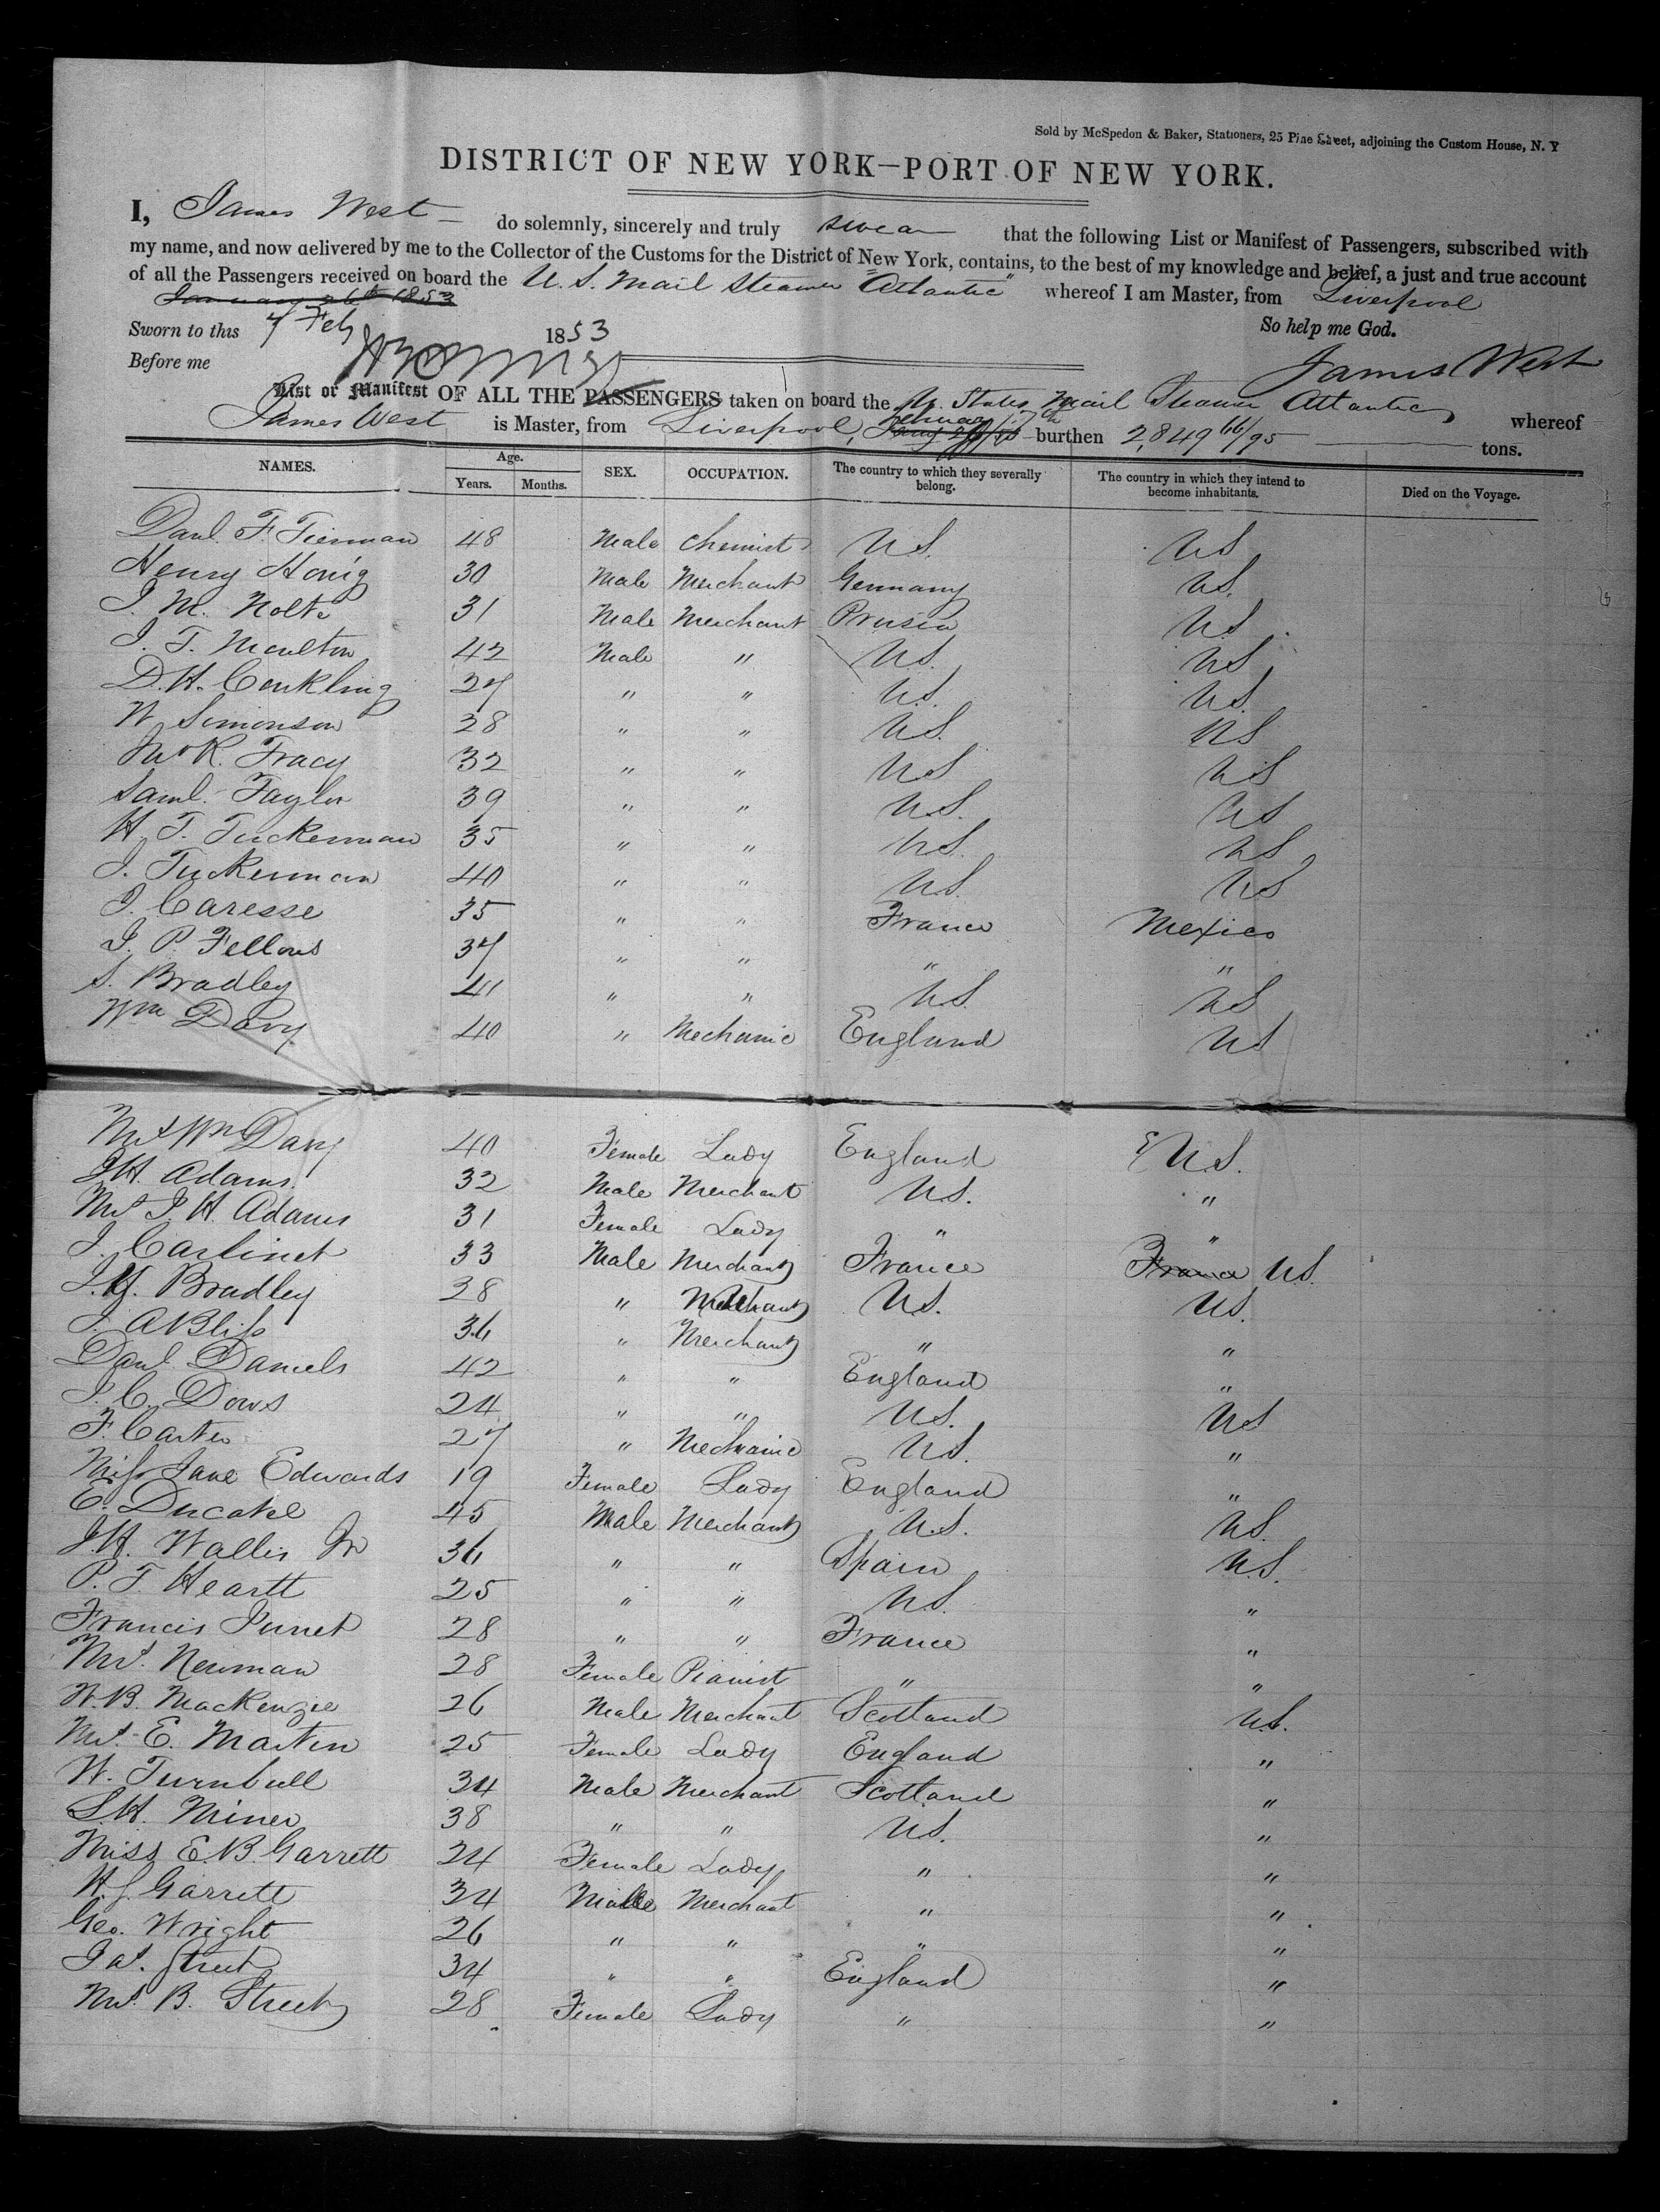 Sold by McSpedon & Baker, Stationers, 25 Pine Street, adjoining the Custom House, N. Y
DISTRICT OF NEW YORK—PORT OF NEW YORK.
I, James West do solemnly, sincerely and truly swear that the following List or Manifest of Passengers, subscribed with
my name, and now delivered by me to the Collector of the Customs for the District of New York, contains, to the best of my knowledge and belief, a just and true account
of all the Passengers received on board the U. S. Mail Steamer "Atlantic" whereof I am Master, from Liverpool
January 26th 1853
So help me God.
Sworn to this 7 Feby 1853
Before me
James West
List or Manifest OF ALL THE PASSENGERS taken on board the U. States Mail Steamer Atlantic whereof
James West is Master, from Liverpool, burthen 2,849 66/95 tons.
NAMES. Age. Years. Months. SEX. OCCUPATION. The country to which they severally belong. The country in which they intend to become inhabitants. Died on the Voyage.
Danl. F. Tiemman 48 Male Chemist U.S. U.S.
Henry Honig 30 Male Merchant Germany U.S.
J. M. Nolte 31 Male Merchant Prusia U.S.
J. T. Moulton 42 Male " U.S. U.S.
D. H. Conkling 27 " " U.S. U.S.
W Simonson 28 " " U.S. U.S.
R. Tracy 32 " " U.S. U.S.
Saml. Taylor 39 " " U.S. U.S.
H. T. Tuckerman 35 " " U.S. U.S.
J. Tuckerman 40 " " U.S. U.S.
J. Caresse 35 " " France Mexico
J. P. Fellows 37 " " " "
S. Bradley 41 " " U.S. U.S.
Wm Davy 40 " Mechanic England U.S.
Mrs Wm Davy 40 Female Lady England U.S.
J. H. Adams 32 Male Merchant U.S. "
Mrs J. H. Adams 31 Female Lady " "
J. Carlinet 33 Male Merchant France France U.S.
J. H. Bradley 28 " Merchant U.S. U.S.
J. A Bliss 36 " Merchant " "
Danl Daniels 42 " " England "
J. C. Dows 24 " " U.S. U.S.
F. Carter 27 " Mechanic U.S. "
Miss Jane Edwards 19 Female Lady England "
E. Ducatel 45 Male Merchant U.S. U.S.
J. H. Wallis Jr 36 " " Spain U.S.
P. T. Heartt 25 " " U.S. "
Francis 28 " " France "
Mrs. Newman 28 Female Pianist " "
W. B. MacKenzie 26 Male Merchant Scotland U.S.
Mrs. E. Martin 25 Female Lady England "
W. Turnbull 34 Male Merchant Scotland "
S. H. Miner 38 " " U.S. "
Miss E. B. Garrett 24 Female Lady " "
H. J. Garrett 34 Male Merchant " "
Geo. Wright 26 " " " "
Jas. Street 34 " " England "
Mrs. B. Street 28 Female Lady " "